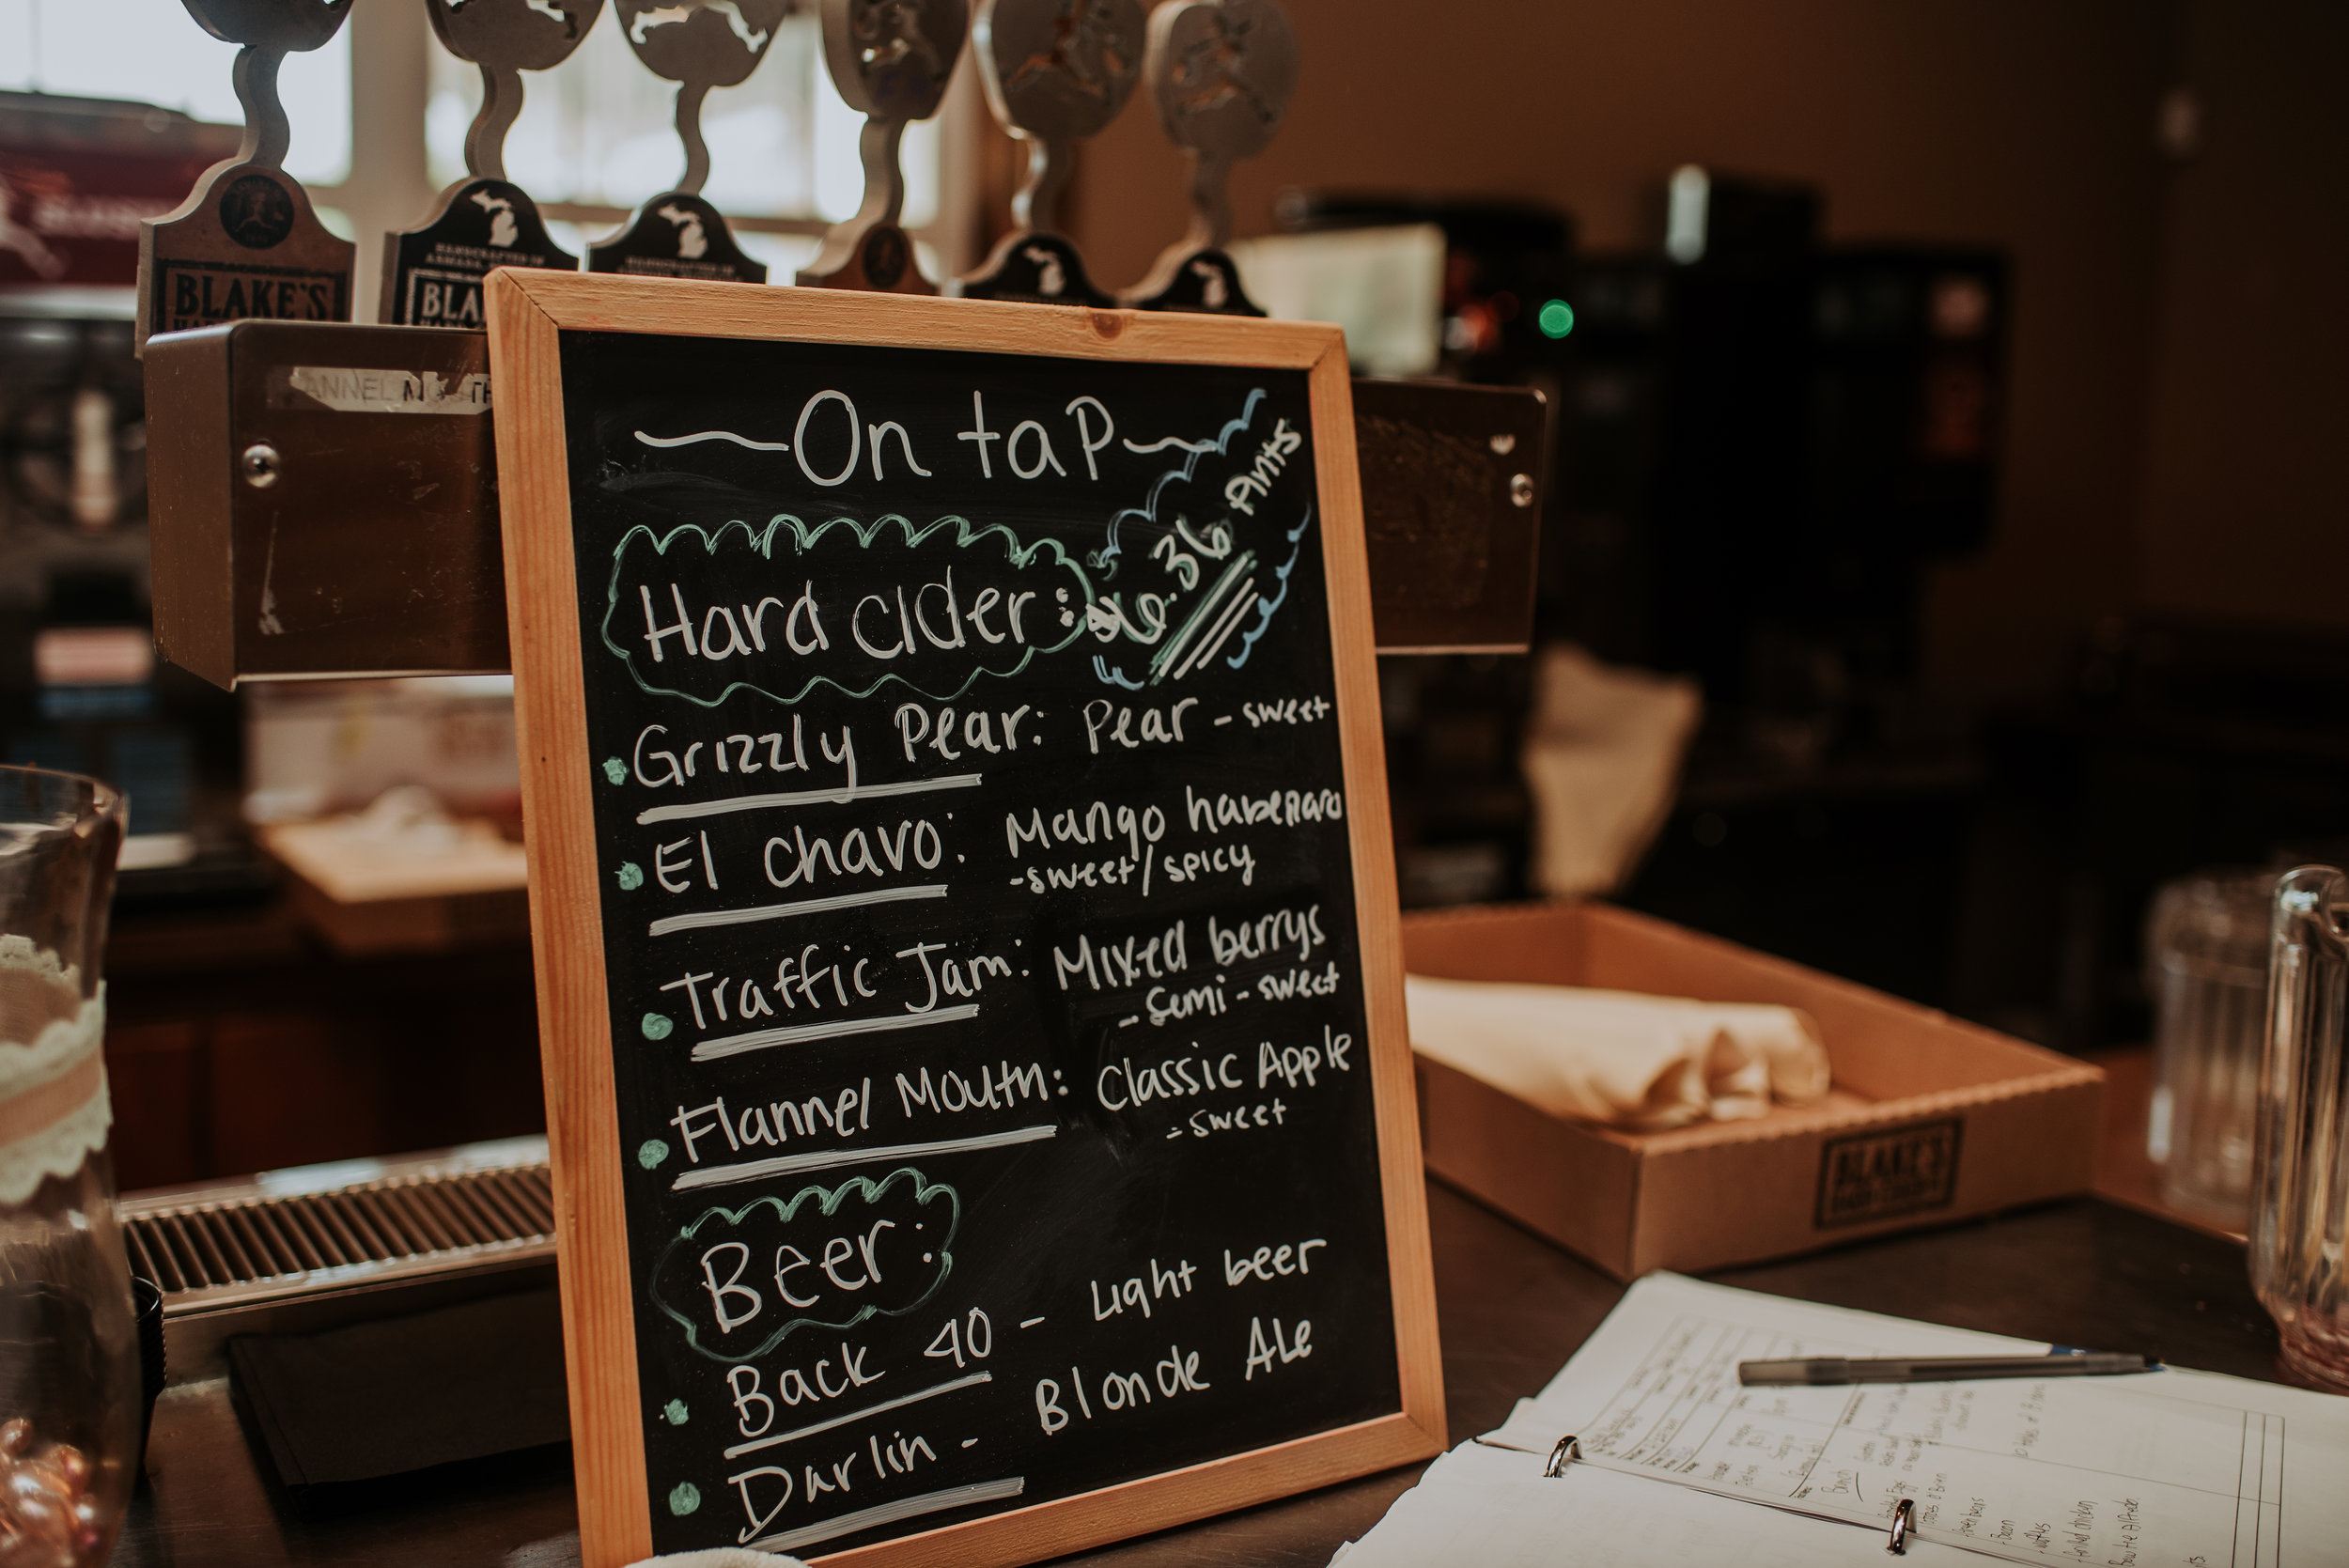 BLAKE'S
HANDCRAFTED IN
ARMADA,
BLA
On tap
$6.36 Pints
Hard cider:
Grizzly Pear: Pear - sweet
El chavo: Mango habenaro
- sweet / spicy
Traffic Jam: Mixed berrys
- semi - sweet
Flannel Mouth: Classic Apple
- sweet
Beer:
Back 40 - Light beer
Darlin - Blonde Ale
BLAKE'S